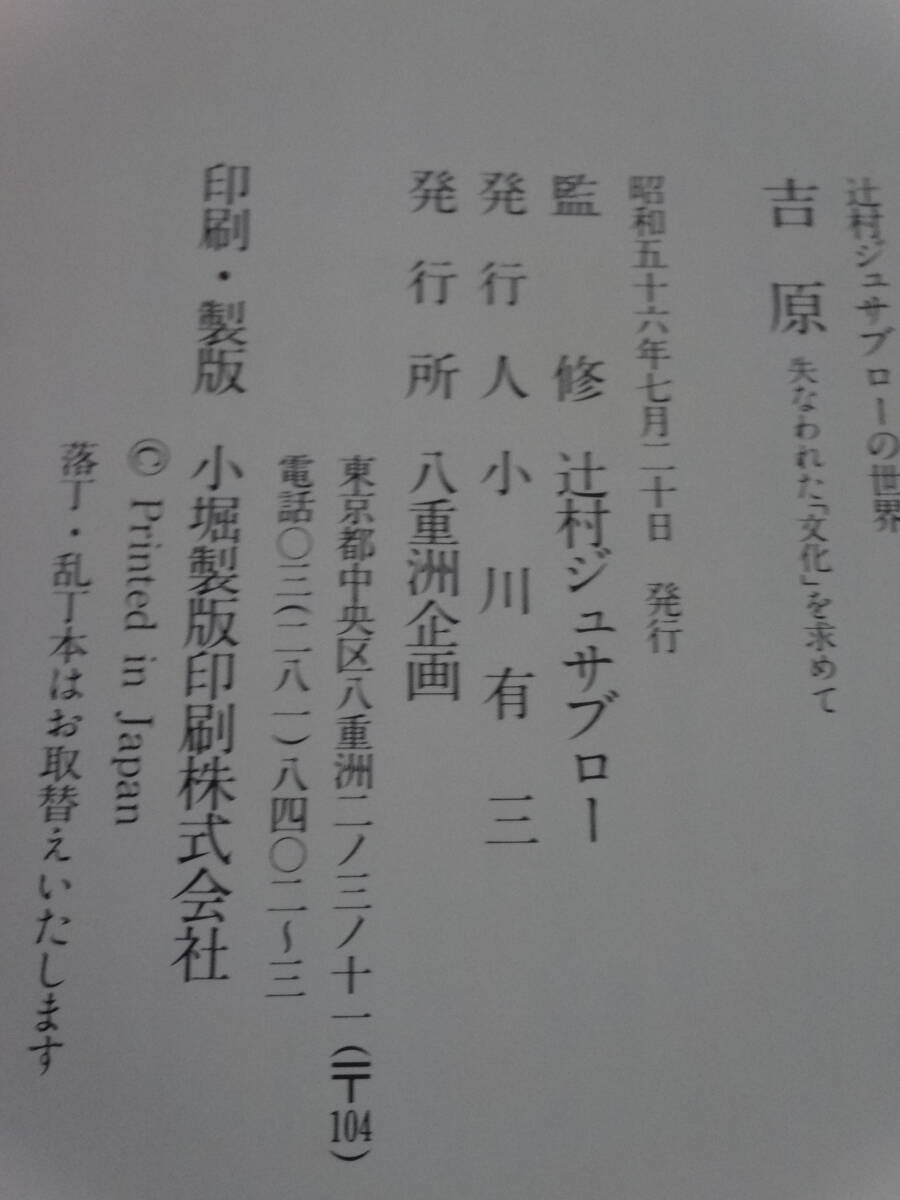 辻村ジュサブローの世界
吉原 失なわれた「文化」を求めて
昭和五十六年七月二十日 発行
監修 辻村ジュサブロー
発行人 小川有三
発行所 八重洲企画
東京都中央区八重洲二ノ三ノ十一(〒104)
電話〇三(二八一)八四〇二~三
印刷・製版 小堀製版印刷株式会社
© Printed in Japan
落丁・乱丁本はお取替えいたします